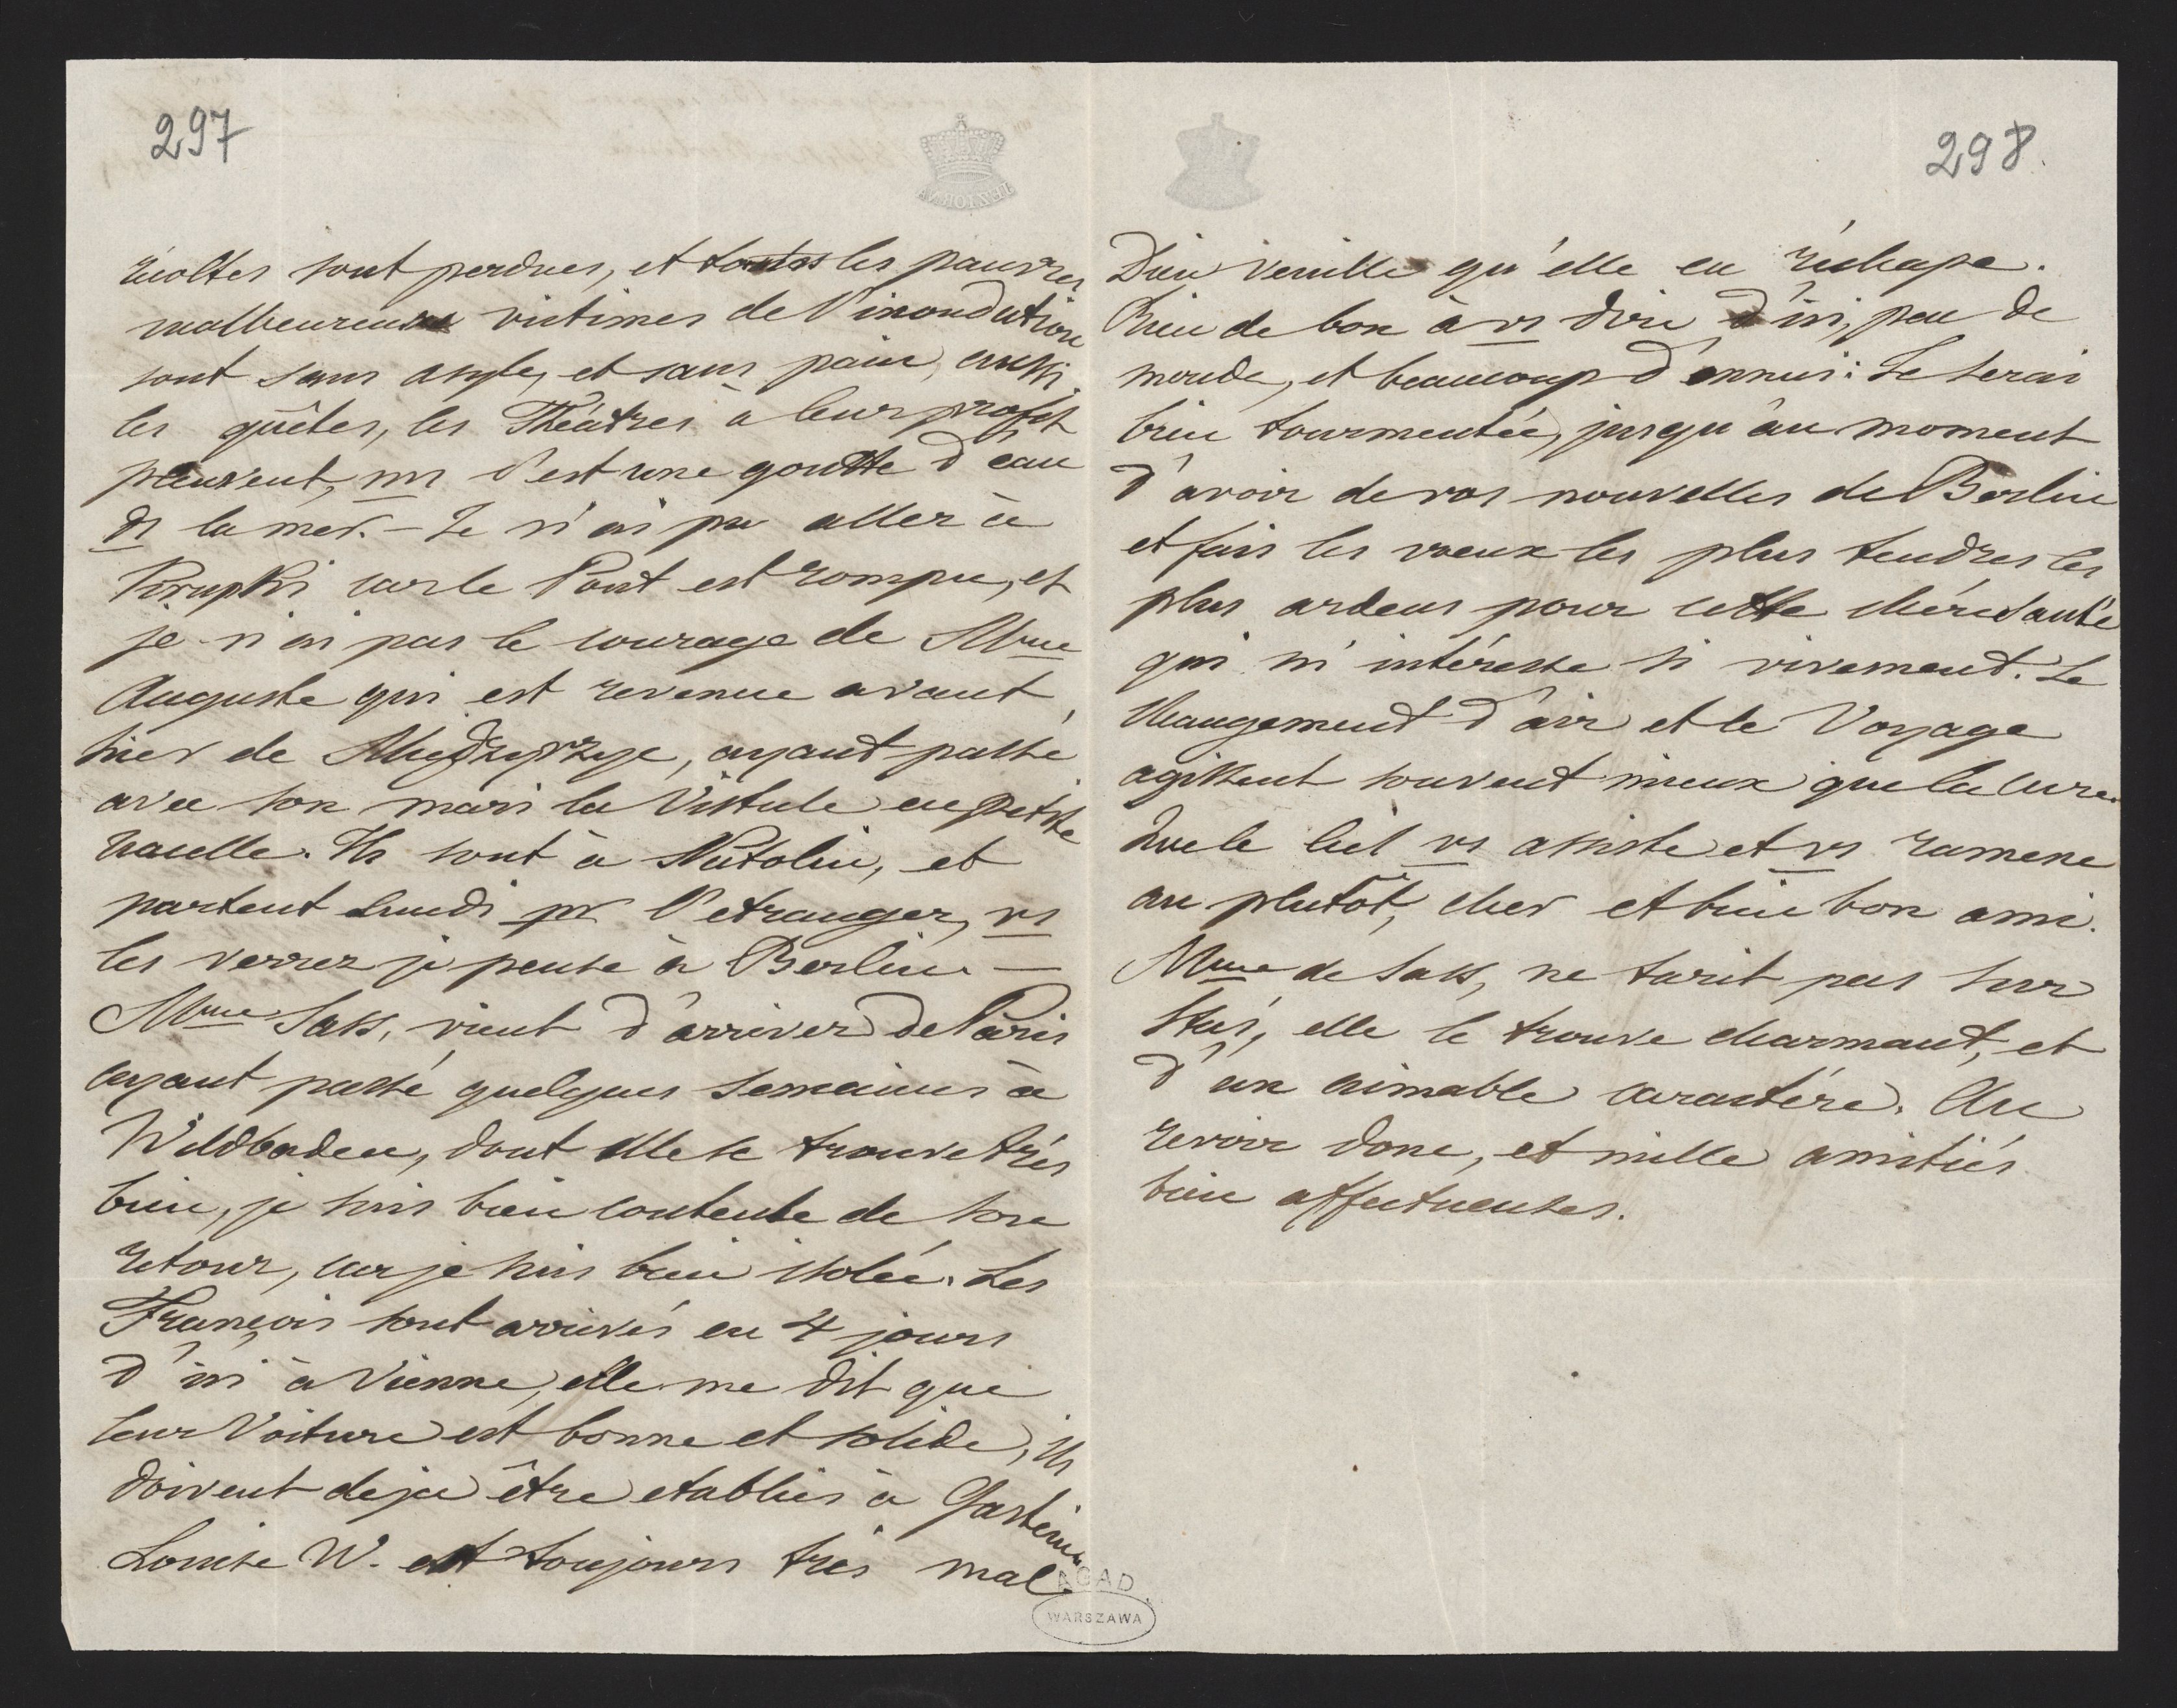 297
récoltes sont perdues, et toutes les pauvres
malheureuses victimes de l'inondation
sont sans asyle, et sans pain, aussi
les quêtes, les Théâtres à leur profit
pleuvent, ms c'est une goutte d'eau
ds la mer. - Je n'ai pu aller à
Krupki car le Pont est rompu, et
je n'ai pas le courage de Mme
Auguste qui est revenue avant
hier de Międzyrzyc, ayant passé
avec son mari la Vistule en petite
nacelle. Ils sont à Natolin, et
partent Lundi pr l'etranger, vs
les verrez je pense à Berlin. -
Mme Sass, vient d'arriver de Paris
ayant passé quelques semaines à
Wildbaden, dont elle se trouve très
bien, je suis bien contente de son
retour, car je suis bien isolée. Les
François sont arrivés en 4 jours
d'ici à Vienne, elle me dit que
leur Voiture est bonne et solide, ils
doivent deja être etablies à Gastein.
Louise W. est toujours très mal
298.
Dieu veuille qu'elle en réchape.
Rien de bon à vs dire d'ici, peu de
monde, et beaucoup d'ennui: Je serai
bien tourmentée, jusqu'au moment
d'avoir de vos nouvelles de Berlin
et fais les voeux les plus tendres les
plus ardens pour cette chère santé
qui m'intéresse si vivement. Le
changement d'air et le Voyage
agissent souvent mieux que la cure.
Que le Ciel vs assiste et vs ramene
au plutôt, cher et bien bon ami.
Mme de Sass, ne tarit pas sur
Stas, elle le trouve charmant, et
d'un aimable caractère. Au
revoir donc, et mille amitiés
bien affectueuses.
AGAD
WARSZAWA